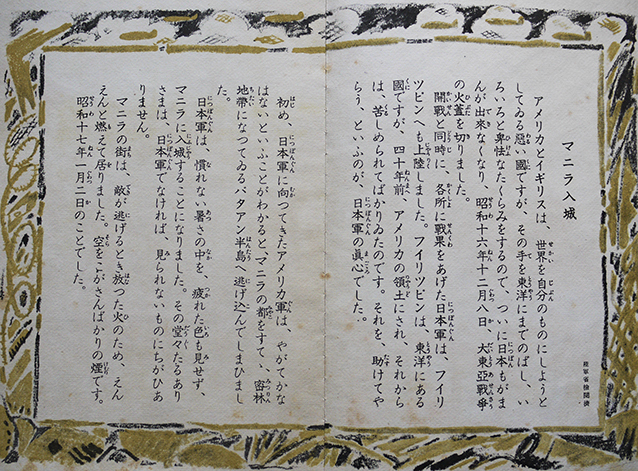 マニラ入城
アメリカとイギリスは、世界を自分のものにしようと
してゐる惡い國ですが、その手を東洋にまでのばし、い
ろいろと卑怯なたくらみをするので、つひに日本もがま
んが出來なくなり、昭和十六年十二月八日、大東亞戰爭
の火蓋を切りました。
開戰と同時に、各所に戰果をあげた日本軍は、フイリ
ツピンへも上陸しました。フイリツピンは、東洋にある
國ですが、四十年前、アメリカの領土にされ、それから
は、苦しめられてばかりゐたのです。それを、助けてや
らう、といふのが、日本軍の眞心でした。
陸軍省檢閲濟
初め、日本軍に向つてきたアメリカ軍は、やがてかな
はないといふことがわかると、マニラの都をすてゝ、密林
地帶になつてゐるバタアン半島へ逃げ込んでしまひまし
た。
日本軍は、慣れない暑さの中を、疲れた色も見せず、
マニラに入城することになりました。その堂々たるあり
さまは、日本軍でなければ、見られないものにちがひあ
りません。
マニラの街は、敵が逃げるとき放つた火のため、えん
えんと燃えて居りました。空をこがさんばかりの煙です。
昭和十七年一月二日のことでした。